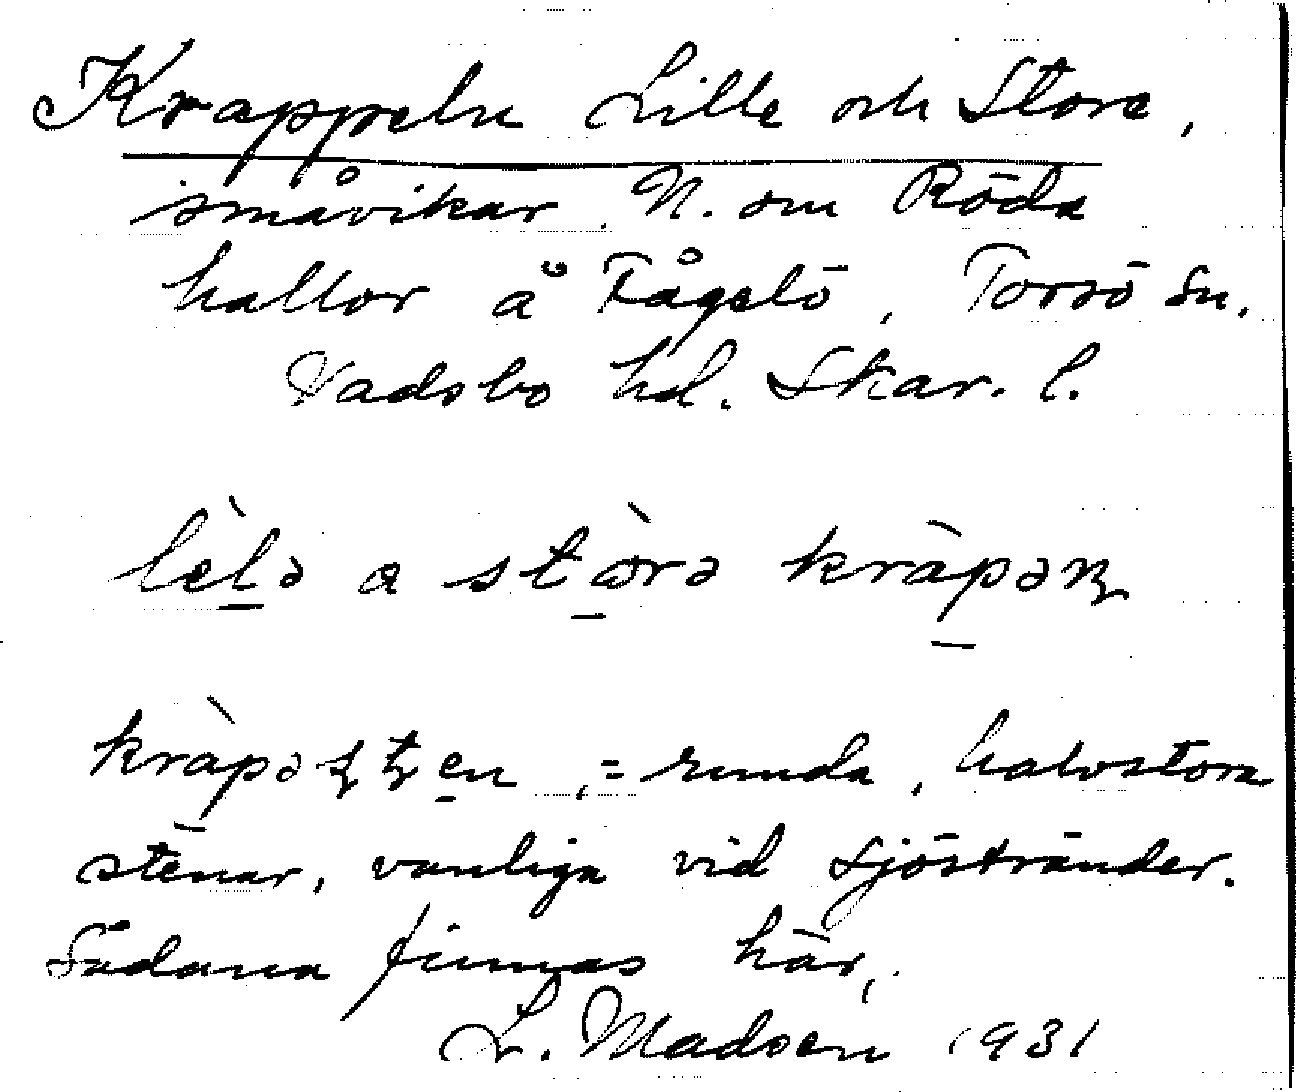 Krappeln Lille och Store,
småvikar N. om Röda
hallor å Fågelö, Torsö sn.
Vadsbo hd. Skar. l.
lèlə a stòrə kràpəɳ
kràpəʂʈen, = runda, halvstora
stenar, vanliga vid sjöstränder.
Sådana finnas här.
L. Madsen 1931